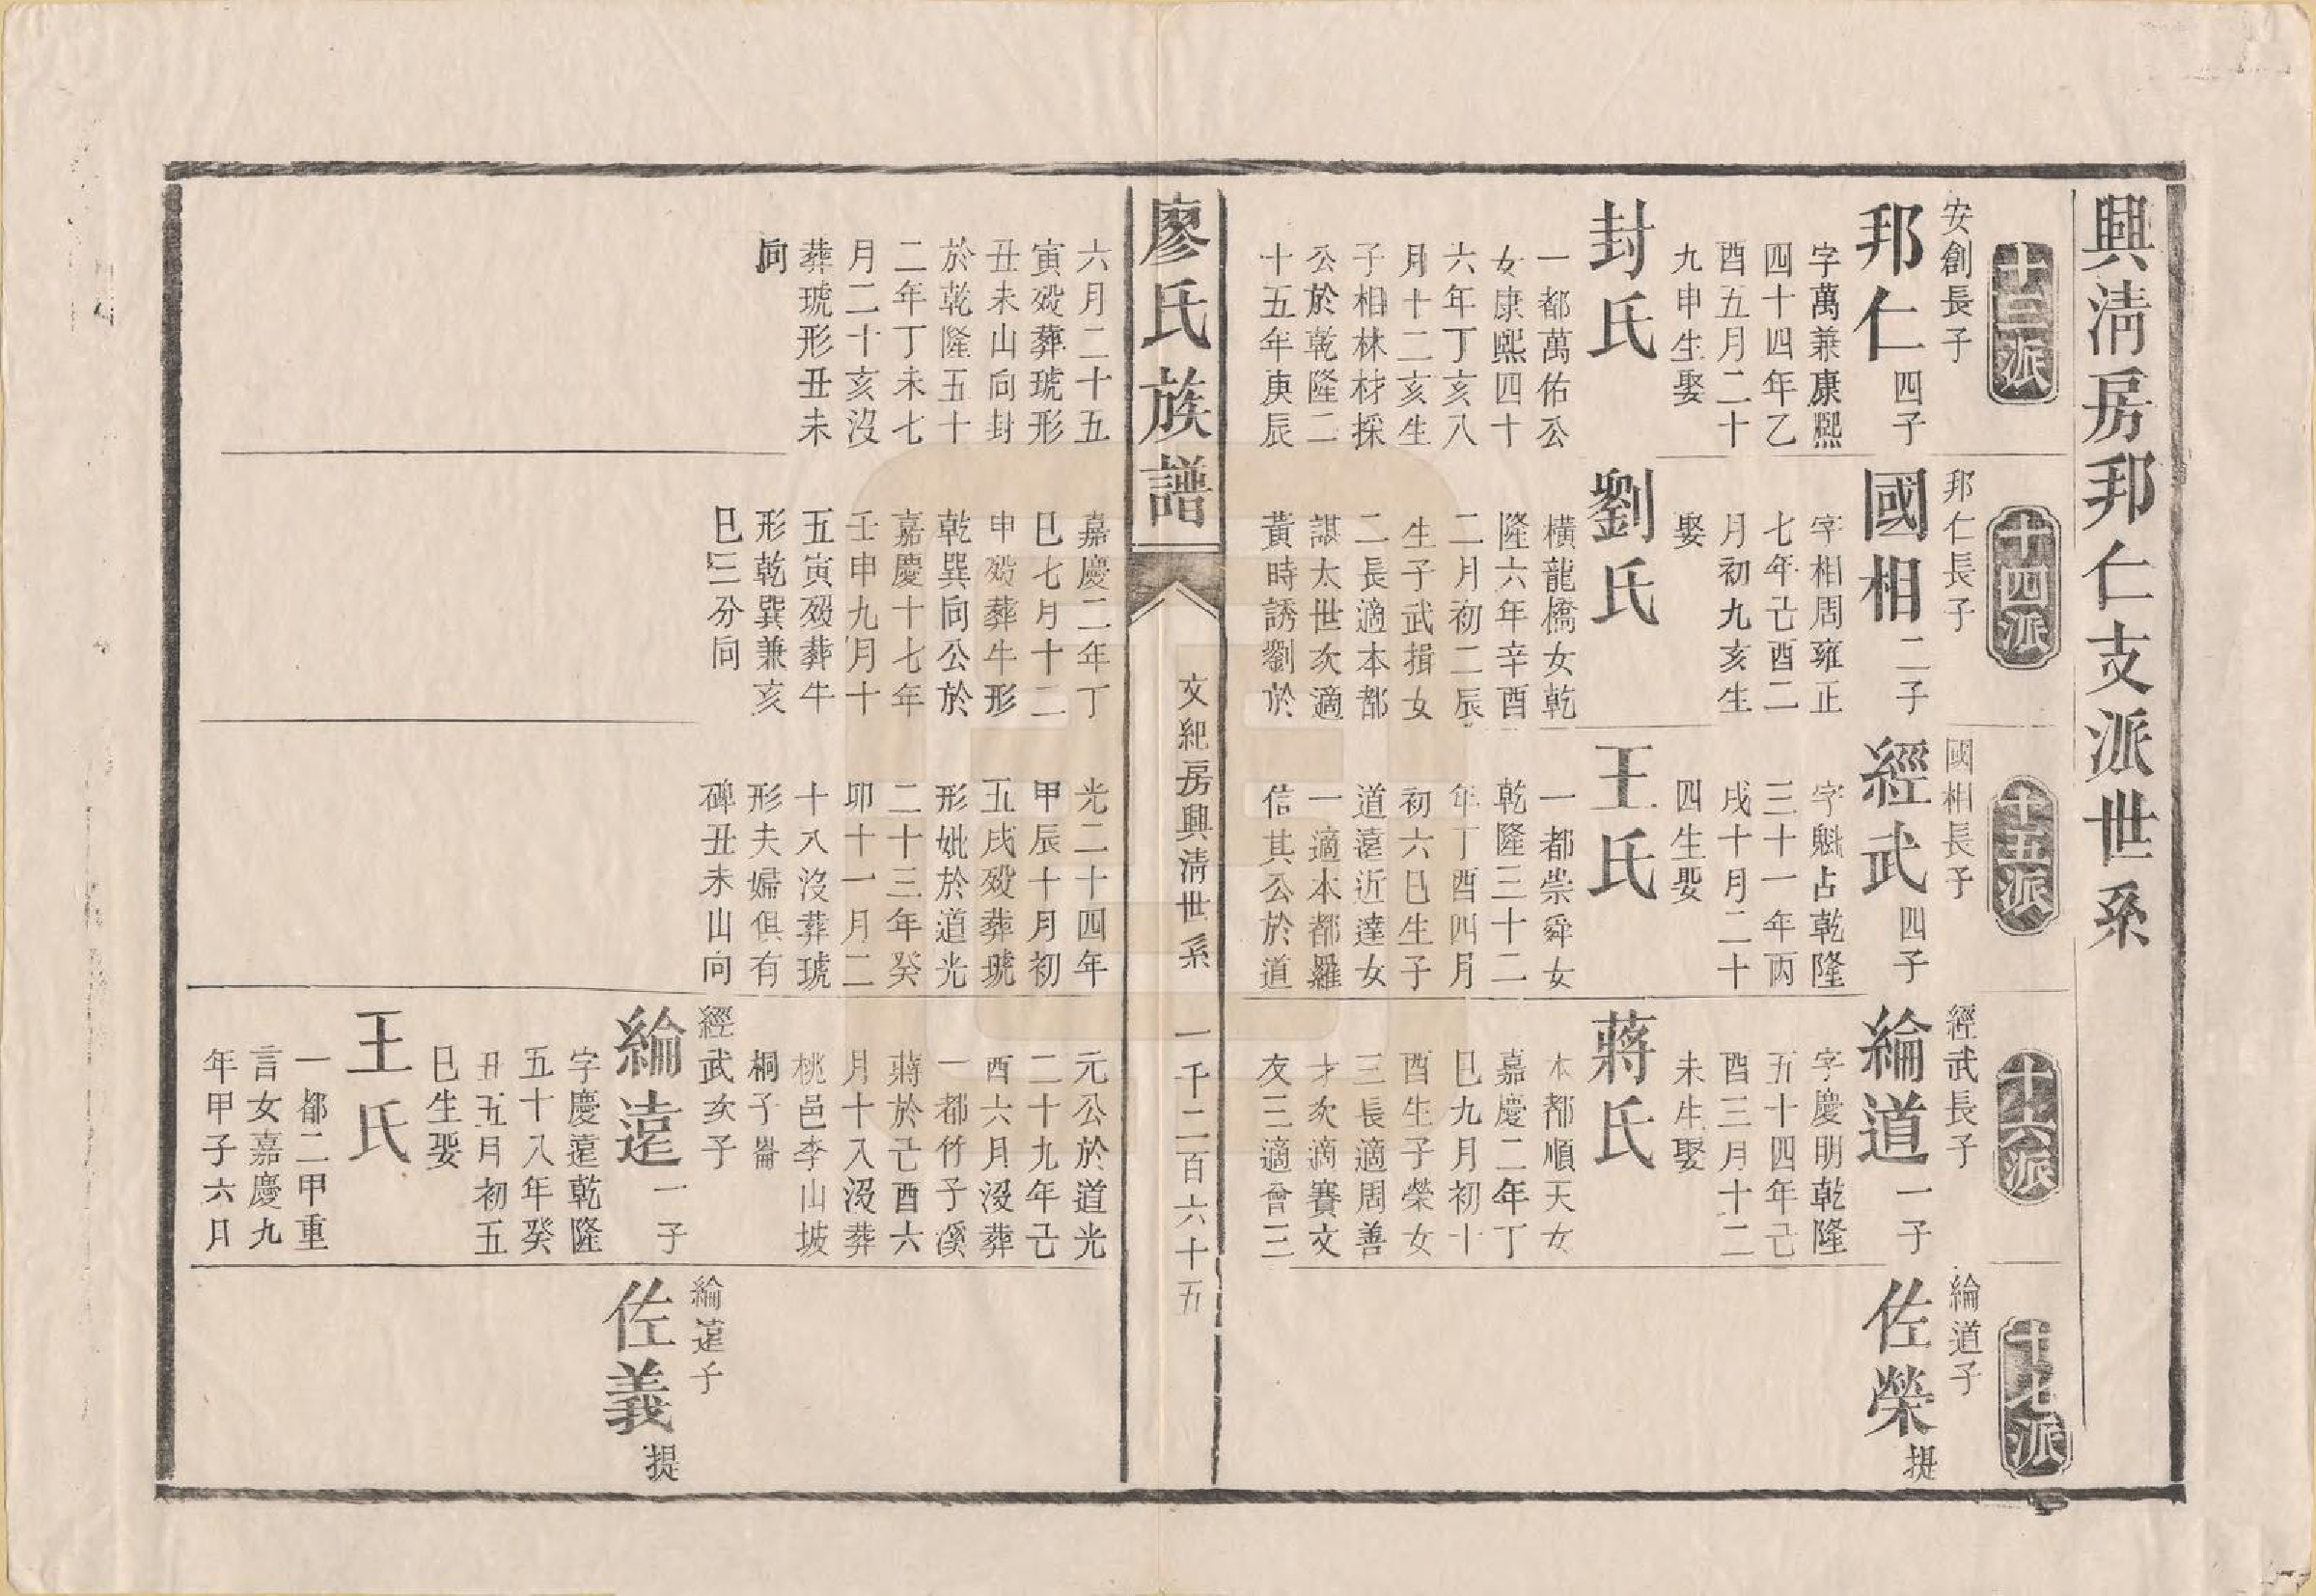 興清房邦仁支派世系
十三派
安創長子
邦仁四子
字萬兼康熙
四十四年乙
酉五月二十
九申生娶
封氏
一都萬佑公
女康熙四十
六年丁亥八
月十二亥生
子相林材採
公於乾隆二
十五年庚辰
六月二十五
寅歿葬琥形
丑未山向封
於乾隆五十
二年丁未七
月二十亥沒
葬琥形丑未
向
十四派
邦仁長子
國相二子
字相周雍正
七年己酉二
月初九亥生
娶
劉氏
橫龍橋女乾
隆六年辛酉
二月初二辰
生子武揖女
二長適本都
諶太世次適
黃時誘劉於
嘉慶二年丁
巳七月十二
申歿葬牛形
乾巽向公於
嘉慶十七年
壬申九月十
五寅歿葬牛
形乾巽兼亥
巳三分向
十五派
國相長子
經武四子
字魁占乾隆
三十一年丙
戌十月二十
四生娶
王氏
一都崇舜女
乾隆三十二
年丁酉四月
初六巳生子
道遠近達女
一適本都羅
信其公於道
光二十四年
甲辰十月初
五戌歿葬琥
形妣於道光
二十三年癸
卯十一月二
十八沒葬琥
形夫婦俱有
碑丑未山向
十六派
經武長子
綸道一子
字慶明乾隆
五十四年己
酉三月十二
未生娶
蔣氏
本都順天女
嘉慶二年丁
巳九月初十
酉生子榮女
三長適周善
才次適賽文
友三適會三
元公於道光
二十九年己
酉六月沒葬
一都竹子溪
蔣於己酉六
月十八沒葬
桃邑李山坡
桐子崙
經武次子
綸遠一子
字慶遠乾隆
五十八年癸
丑五月初五
巳生娶
王氏
一都二甲重
言女嘉慶九
年甲子六月
十七派
綸道子
佐榮提
綸遠子
佐義提
廖氏族譜
文紀房興清世系
一千二百六十五